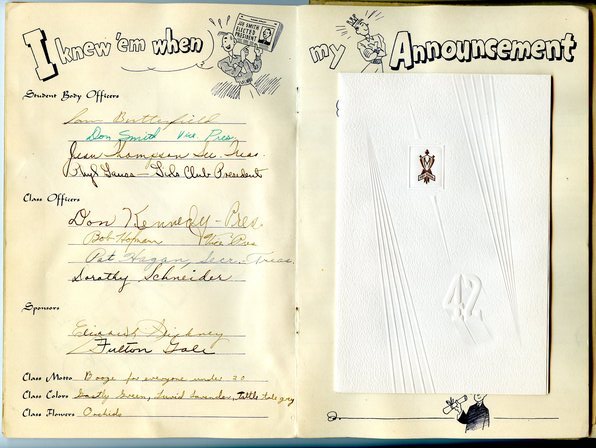 I knew 'em when
JOE SMITH
ELECTED
PRESIDENT
Student Body Officers
Sam Butterfield
Don Smith Vice Pres.
Jean Thompson Sec. Treas.
Club President
Class Officers
Don Kennedy - Pres.
Bob Hofmann Vice Pres
Pat Hagan, Secr. Treas.
Dorothy Schneider
Sponsors
Elizabeth
Fulton Gale
Class Motto Booze for everyone under 20
Class Colors Gastly Green, Livid Lavender, tattle tale gray
Class Flowers Orchids
my Announcement
42